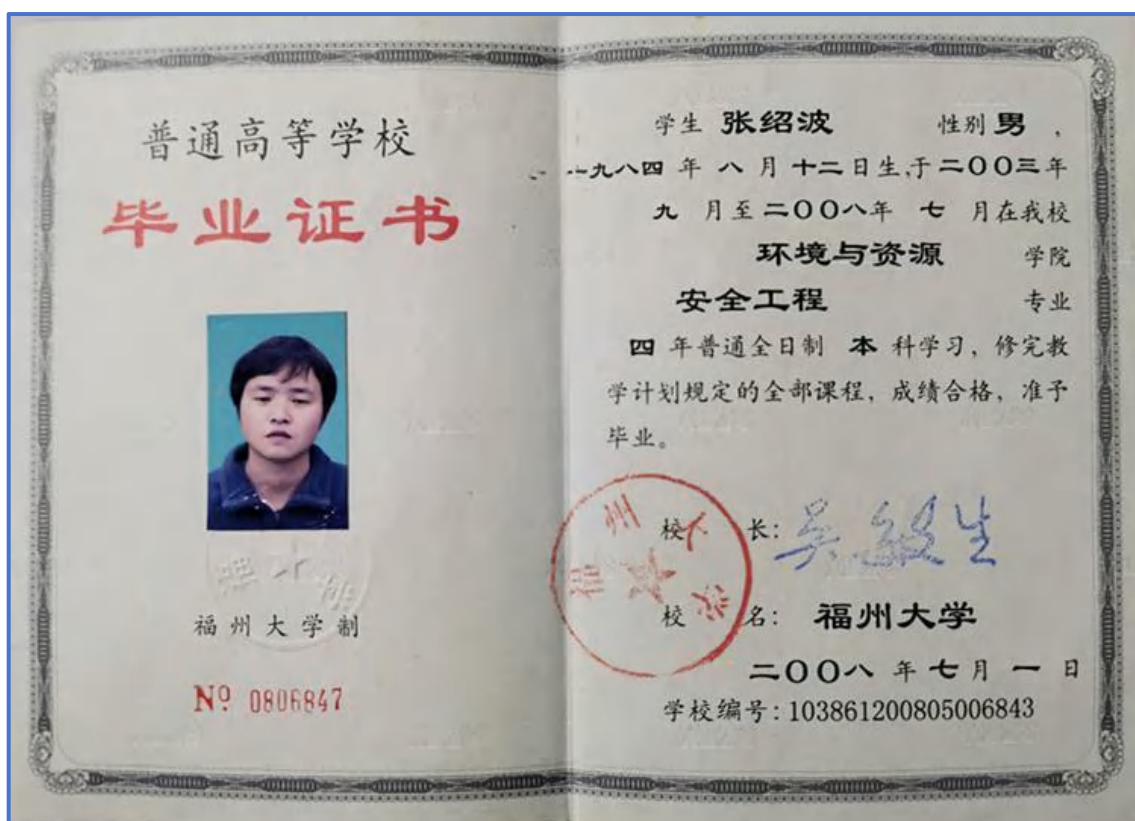 普通高等学校
毕业证书
福州大学制
Nº 0806847
学生 张绍波 性别 男 ,
一九八四 年 八 月 十二 日生,于 二〇〇三 年
九 月至 二〇〇八 年 七 月在我校
环境与资源 学院
安全工程 专业
四 年普通全日制 本 科学习，修完教
学计划规定的全部课程，成绩合格，准予
毕业。
校 长: 吴敏生
校 名: 福州大学
福州大学
二〇〇八 年 七 月 一 日
学校编号: 103861200805006843